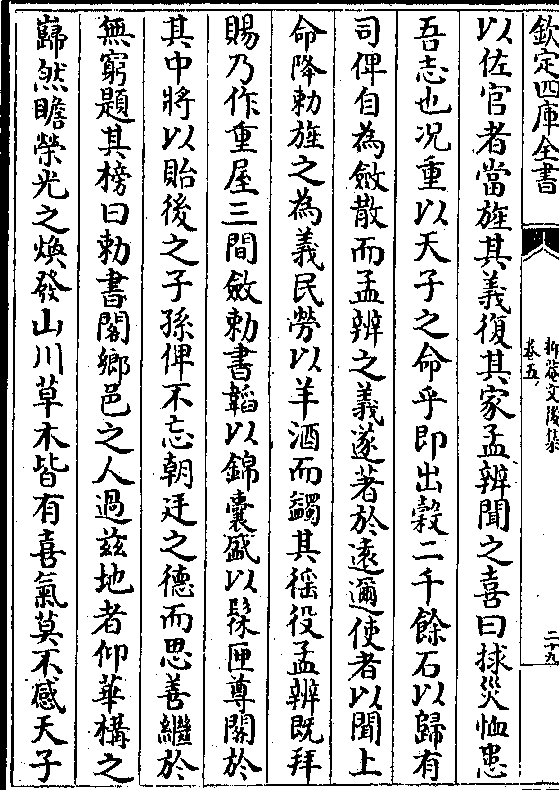 欽定四庫全書
抑菴文後集
卷五
二十九
以佐官者當旌其義復其家孟辨聞之喜曰捄災恤患
吾志也况重以天子之命乎即出穀二千餘石以歸有
司俾自為斂散而孟辨之義遂著於遠邇使者以聞上
命降勅旌之為義民勞以羊酒而蠲其徭役孟辨既拜
賜乃作重屋三間斂勅書韜以錦囊盛以髹匣尊閣於
其中將以貽後之子孫俾不忘朝廷之德而思善繼於
無窮題其榜曰勅書閣鄉邑之人過兹地者仰華構之
巋然瞻榮光之煥發山川草木皆有喜氣莫不感天子